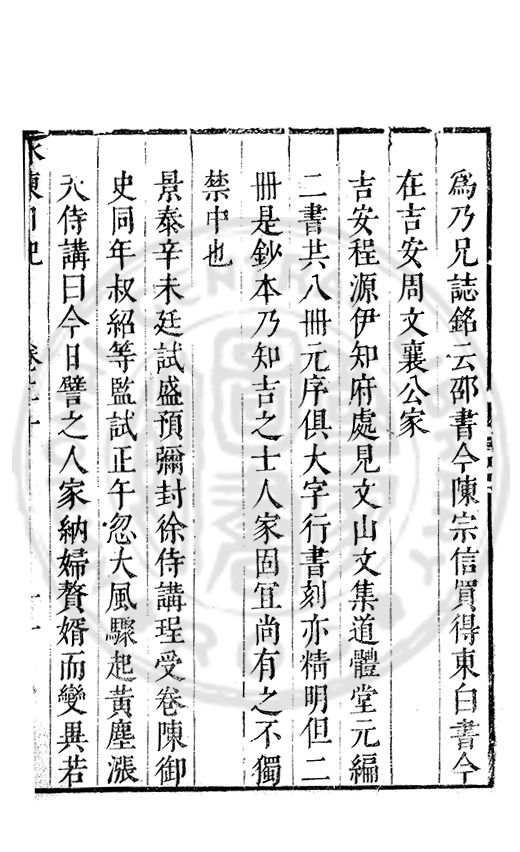 為乃兄誌銘云邵書今陳宗信買得東白書今
在吉安周文襄公家
吉安程源伊知府處見文山文集道體堂元編
二書共八冊元序俱大字行書刻亦精明但二
冊是鈔本乃知吉之士人家固宜尚有之不獨
禁中也
景泰辛未廷試盛預彌封徐侍講珵受卷陳御
史同年叔紹等監試正午忽大風驟起黃塵漲
天侍講曰今日譬之人家納婦贅婿而變異若
水東日記